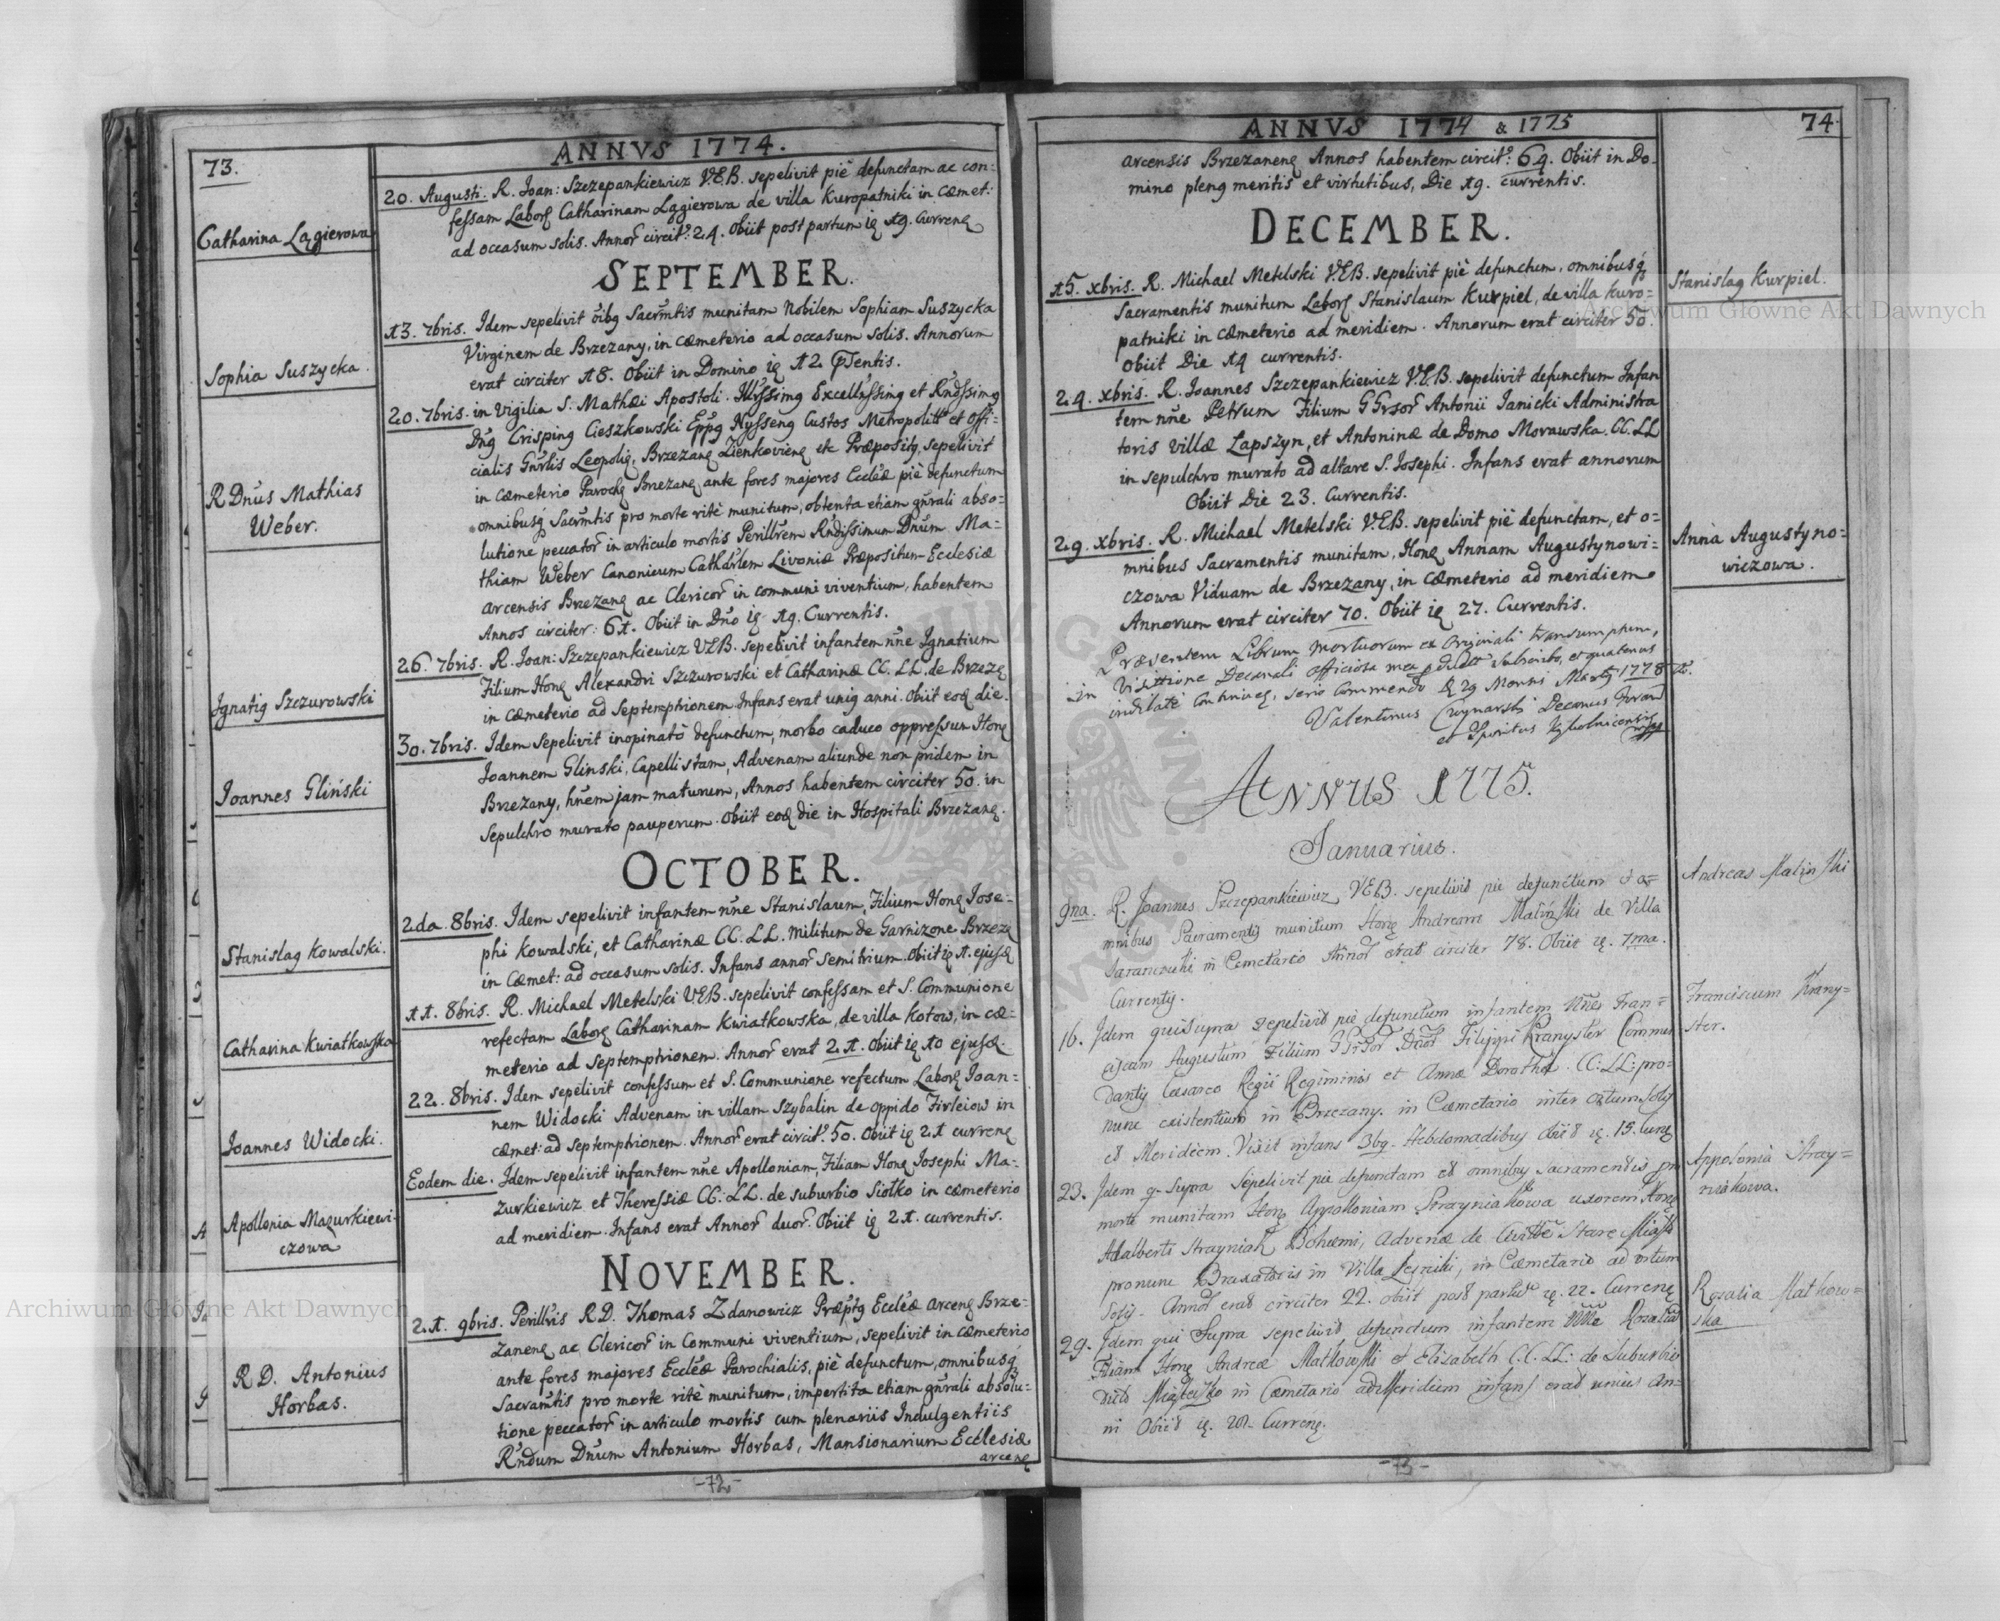 73.
ANNVS 1774.
Catharina Lągierowa
20. Augusti. R. Joan: Szczepankiewicz V.E.B. sepelivit piè defunctam ac con:
fessam Laborę Catharinam Lągierowa de villa Kuropatniki in cæmet:
ad occasum solis. Annoř circitº: 24. Obiit post partum ię 19. Currenę
SEPTEMBER.
Sophia Suszycka.
13. 7bris. Idem sepelivit õibg Sacrm̃tis munitam Nobilem Sophiam Suszycka
Virginem de Brzezany, in cæmeterio ad occasum solis. Annorum
erat circiter 18. Obiit in Domino ię 12 pſentis.
R Dnus Mathias
Weber.
20. 7bris. in Vigilia S. Mathæi Apostoli. Illr̃ssimg Excellñssimg et Rndssimg
Dñg Crisping Cieszkowski Eppg Nysseng Custos Metropolitt et Offi:
cialis Gnr̃lis Leopolię, Brzezanę Zienkovienę etc Præpositg, sepelivit
in cæmeterio Parochę Brzezanę ante fores majores Ecclæ piè defunctum
omnibusq́ Sacrm̃tis pro morte ritè munitum, obtenta etiam gnr̃ali abso-
lutione peccatoř in articulo mortis Perillr̃em Rñdissimum Dnũm Ma-
thiam Weber Canonicum Cathdr̃lem Livoniæ Præpositum Ecclesiæ
arcensis Brzezanę ac Clericoř in communi viventium, habentem
Annos circiter: 61. Obiit in Dño ię 19. Currentis.
Ignatig Szczurowski
26. 7bris. R. Joan: Szczepankiewicz VEB. sepelivit infantem nñe Ignatium
Filium Honę Alexandri Szczurowski et Catharinæ CC. LL. de Brzezę
in cæmeterio ad Septemptrionem Infans erat unig anni. Obiit eoę die.
Joannes Gliński
30. 7bris. Idem sepelivit inopinatò defunctum, morbo caduco oppressum Honę
Joannem Glinski, Capellistam, Advenam aliunde non pridem in
Brzezany, hñem jam maturum, Annos habentem circiter 50. in
Sepulchro murato pauperum. Obiit eoę die in Hospitali Brzezanę.
OCTOBER.
Stanislag Kowalski.
2da. 8bris. Idem sepelivit infantem nñe Stanislaum, Filium Honę Jose-
phi Kowalski, et Catharinæ CC. LL. militum de Garnizone Brzezę
in Cæmet: ad occasum solis. Infans annoř semitrium. Obiit ię 1. ejusę
Catharina Kwiatkowska
11. 8bris. R. Michael Metelski VEB. sepelivit confessam et S. Communione
refectam Laborę Catharinam Kwiatkowska, de villa Kotow, in cæ-
meterio ad Septemptrionem. Annoř erat 21. Obiit ię 10 ejusę.
Joannes Widocki.
22. 8bris. Idem sepelivit confessum et S. Communione refectum Laborę Joan-
nem Widocki Advenam in villam Szybalin de oppido Firleiow in
cæmet: ad Septemptrionem. Annoř erat circitº. 50. Obiit ię 21 currenę
Apollonia Mazurkiewi-
czowa
Eodem die. Idem sepelivit infantem nñe Apolloniam, Filiam Honę Josephi Ma-
zurkiewicz et Theressiæ CC. LL. de suburbio Siołko in cæmeterio
ad meridiem. Infans erat Annoř duoř. Obiit ię 21. currentis.
NOVEMBER.
R D. Antonius
Horbas.
21. 9bris. Perillr̃is R D. Thomas Zdanowicz Præptg Ecclæ arcenę Brze-
zanenę ac Clericoř in Communi viventium, sepelivit in cæmeterio
ante fores majores Ecclæ Parochialis, piè defunctum, omnibusq́
Sacram̃tis pro morte ritè munitum, impertita etiam gnr̃ali absolu-
tione peccatoř in articulo mortis cum plenariis Indulgentiis
Rñdum Dnũm Antonium Horbas, Mansionarium Ecclesiæ
arcenę
-72-
ANNVS 1774 & 1775
74.
arcensis Brzezanenę Annos habentem circitº: 69. Obiit in Do-
mino pleng meritis et virtutibus, Die 19. currentis.
DECEMBER.
Stanislag Kurpiel.
15. xbris. R. Michael Metelski V.E.B. sepelivit piè defunctum, omnibusq́
Sacramentis munitum Laborę Stanislaum Kurpiel, de villa Kuro-
patniki in cæmeterio ad meridiem. Annorum erat circiter 50.
Obiit Die 14 currentis.
24. xbris. R. Joannes Szczepankiewicz V.E.B. sepelivit defunctum Infan
tem nñe Petrum Filium GGrsoř Antonii Janicki Administra
toris villæ Lapszyn, et Antoninæ de Domo Morawska. CC. LL
in sepulchro murato ad altare S. Josephi. Infans erat annorum
Obiit Die 23. Currentis.
Anna Augustyno-
wiczowa.
29. xbris. R. Michael Metelski V.E.B. sepelivit piè defunctam, et o-
mnibus Sacramentis munitam, Honę Annam Augustynowi-
czowa Viduam de Brzezany, in cæmeterio ad meridiem
Annorum erat circiter 70. Obiit ię 27. Currentis.
Præsentem Librum mortuorum ex Originali transumptum,
in Visittione Decanali officiosa mea subscribo, et quatenus
indilatè continueę, serio commendo 29 Mensi Martg 1778
Valentinus Decanus
et
ANNUS 1775.
Januarius.
Andreas Malinski
9na. R. Joannes Szczepankiewicz VEB. sepelivit pie defunctum et o=
mnibus Sacramentis munitum Honę Andream Maliński de Villa
Saranczuki in Cemetario Annoř erat circiter 78. Obiit ię. 7ma.
Currentis.
Franciscum Krany=
ster.
16. Idem qui supra sepelivit piè defunctum infantem nñe Fran=
ciscum Augustum Filium Filippi Kranyster Commen
dantis Cæsareo Regii Regiminis et Annæ Dorothæ. CC: LL: pro-
nunc existentium in Brzezany. in Cæmetario inter ortum solis
et Meridiem. Vixit infans 3bg. Hebdomadibus obiit ię. 15. Currę
Appolonia Stray=
niakowa.
23. Idem q. supra Sepelivit pie defunctam et omnibus Sacramentis pro
morte munitam Honę Appolloniam Strayniakowa uxorem Honę
Adalberti Strayniak Bohæmi, Advenæ de Civitte Stare Miasto
pronunc Braxatoris in Villa Leśniki, in Cæmetario ad ortum
Solis. Annoř erat circiter 22. obiit post partum ię. 22. Currenę
Rosalia Matkow=
ska
29. Idem qui Supra sepelivit defunctum infantem nñe Rozaliã
Filiam Honę Andreæ Matkowski et Elisabeth C.C. LL: de Suburbio
dicto Miasteczko in Cæmetario ad Meridiem infans erat unius An-
ni Obiit ię. 28. Currenę.
-73-
Archiwum Główne Akt Dawnych
Archiwum Główne Akt Dawnych